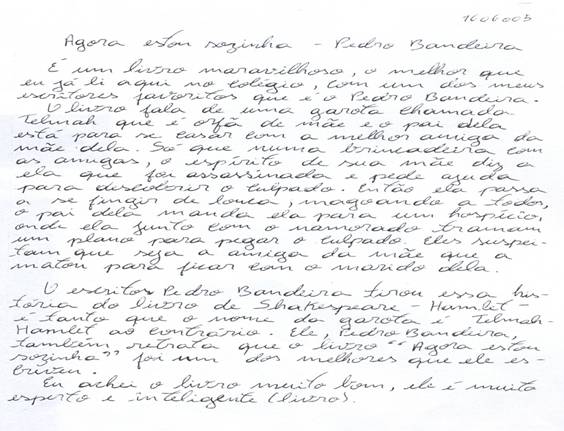 1606005
Agora estou sozinha - Pedro Bandeira
É um livro maravilhoso, o melhor que
eu já li aqui no colégio, com um dos meus
escritores favoritos que é o Pedro Bandeira.
O livro fala de uma garota chamada
Telmah que é orfã de mãe e o pai dela
está para se casar com a melhor amiga da
mãe dela. Só que numa brincadeira com
as amigas, o espírito de sua mãe diz a
ela que foi assassinada e pede ajuda
para descobrir o culpado. Então ela passa
a se fingir de louca, magoando a todos,
o pai dela manda ela para um hospício,
onde ela junto com o namorado tramam
um plano para pegar o culpado. Eles suspei-
tam que seja a amiga da mãe que a
matou para ficar com o marido dela.
O escritos Pedro Bandeira tirou essa his-
tória do livro de Shakespeare - Hamlet -
é tanto que o nome da garota é Telmah-
Hamlet ao contrário. Ele, Pedro Bandeira,
também retrata que o livro "Agora estou
sozinha" foi um dos melhores que ele es-
creveu.
Eu achei o livro muito bom, ele é muito
esperto e inteligente (livro).